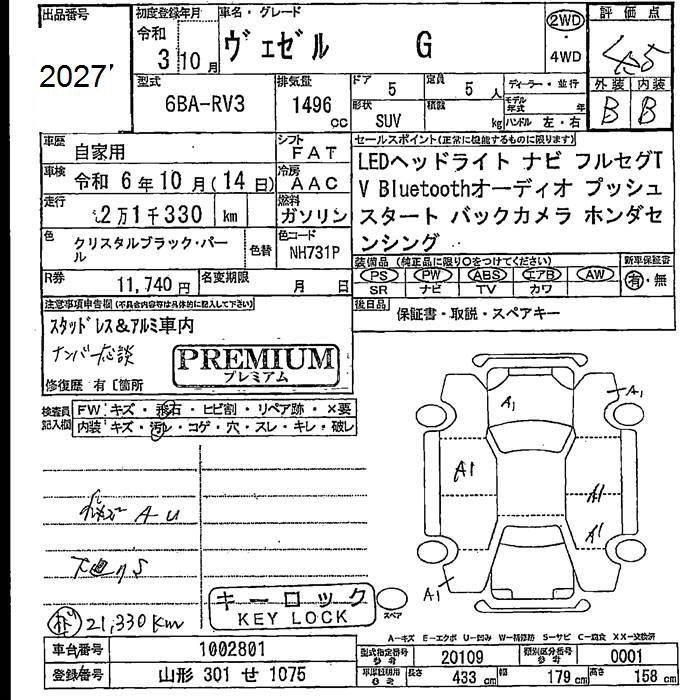 出品番号 初度登録年月 車名・グレード 2WD 評価点
2027' 令和 3年10月 ヴェゼル G ・ 4WD 4.5
型式 排気量 ドア 5 定員 5人 ディーラー・並行 外装 内装
6BA-RV3 1496cc 形状 SUV 積載 kg モデル年式 年 ハンドル 左・右 B B
車歴 自家用 シフト FAT セールスポイント(正常に機能するものに限ります)
車検 令和 6年10月(14日) 冷房 AAC LEDヘッドライト ナビ フルセグT
走行 2万1千330km 燃料 ガソリン V Bluetoothオーディオ プッシュ
色 クリスタルブラック・パール 色替 色コード NH731P スタート バックカメラ ホンダセ
ンシング
装備品(純正品に限り○をつけてください) 新車保証書
R券 11,740円 名変期限 月 日 PS PW ABS エアB AW 有・無
SR ナビ TV カワ
注意事項申告欄(不具合内容等は具体的に記入して下さい) 後日品
スタッドレス&アルミ車内 保証書・取説・スペアキー
ナンバー応談 PREMIUM
プレミアム
修復歴 有〔箇所
検査員記入欄 FW キズ・飛石・ヒビ割・リペア跡・×要
内装 キズ・汚レ・コゲ・穴・スレ・キレ・破レ
A1 A1
A1 A1
A1
AU
下廻りS A1
21,330Km キーロック
KEY LOCK スペア
A-キズ E-エクボ U-凹み W-補修跡 S-サビ C-腐食 XX-交換済
車台番号 1002801 型式指定番号 参考 20109 類別区分番号 参考 0001
登録番号 山形 301 せ 1075 参考 長さ 433cm 幅 179cm 高さ 158cm